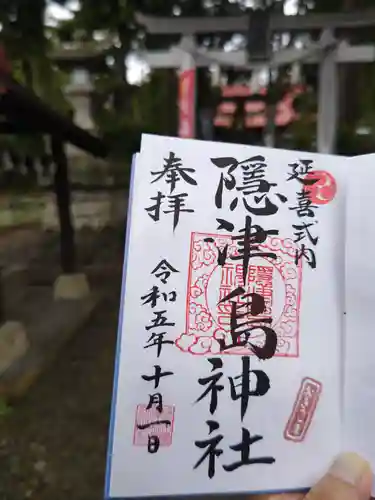 延喜式内
隠津島神社
奉拝
令和五年十月一日